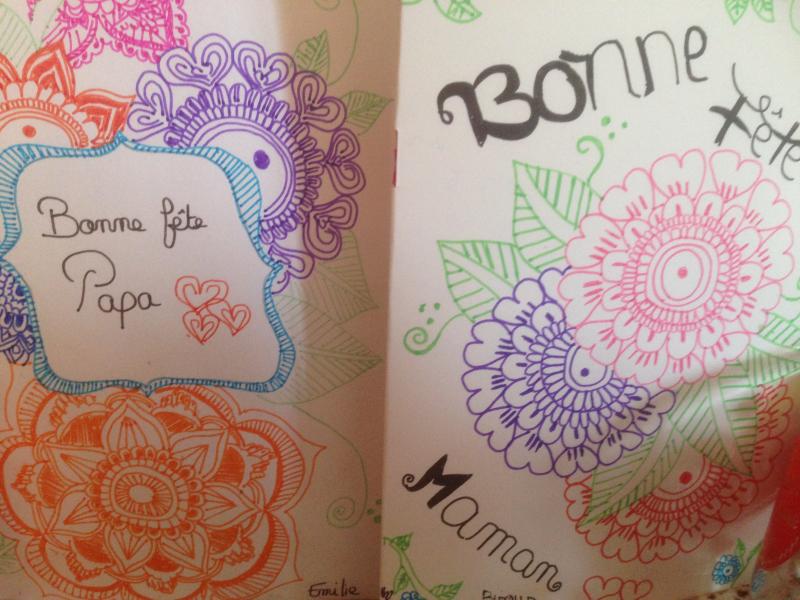 Bonne fête
Papa
Emilie
Bonne
Fête
Maman